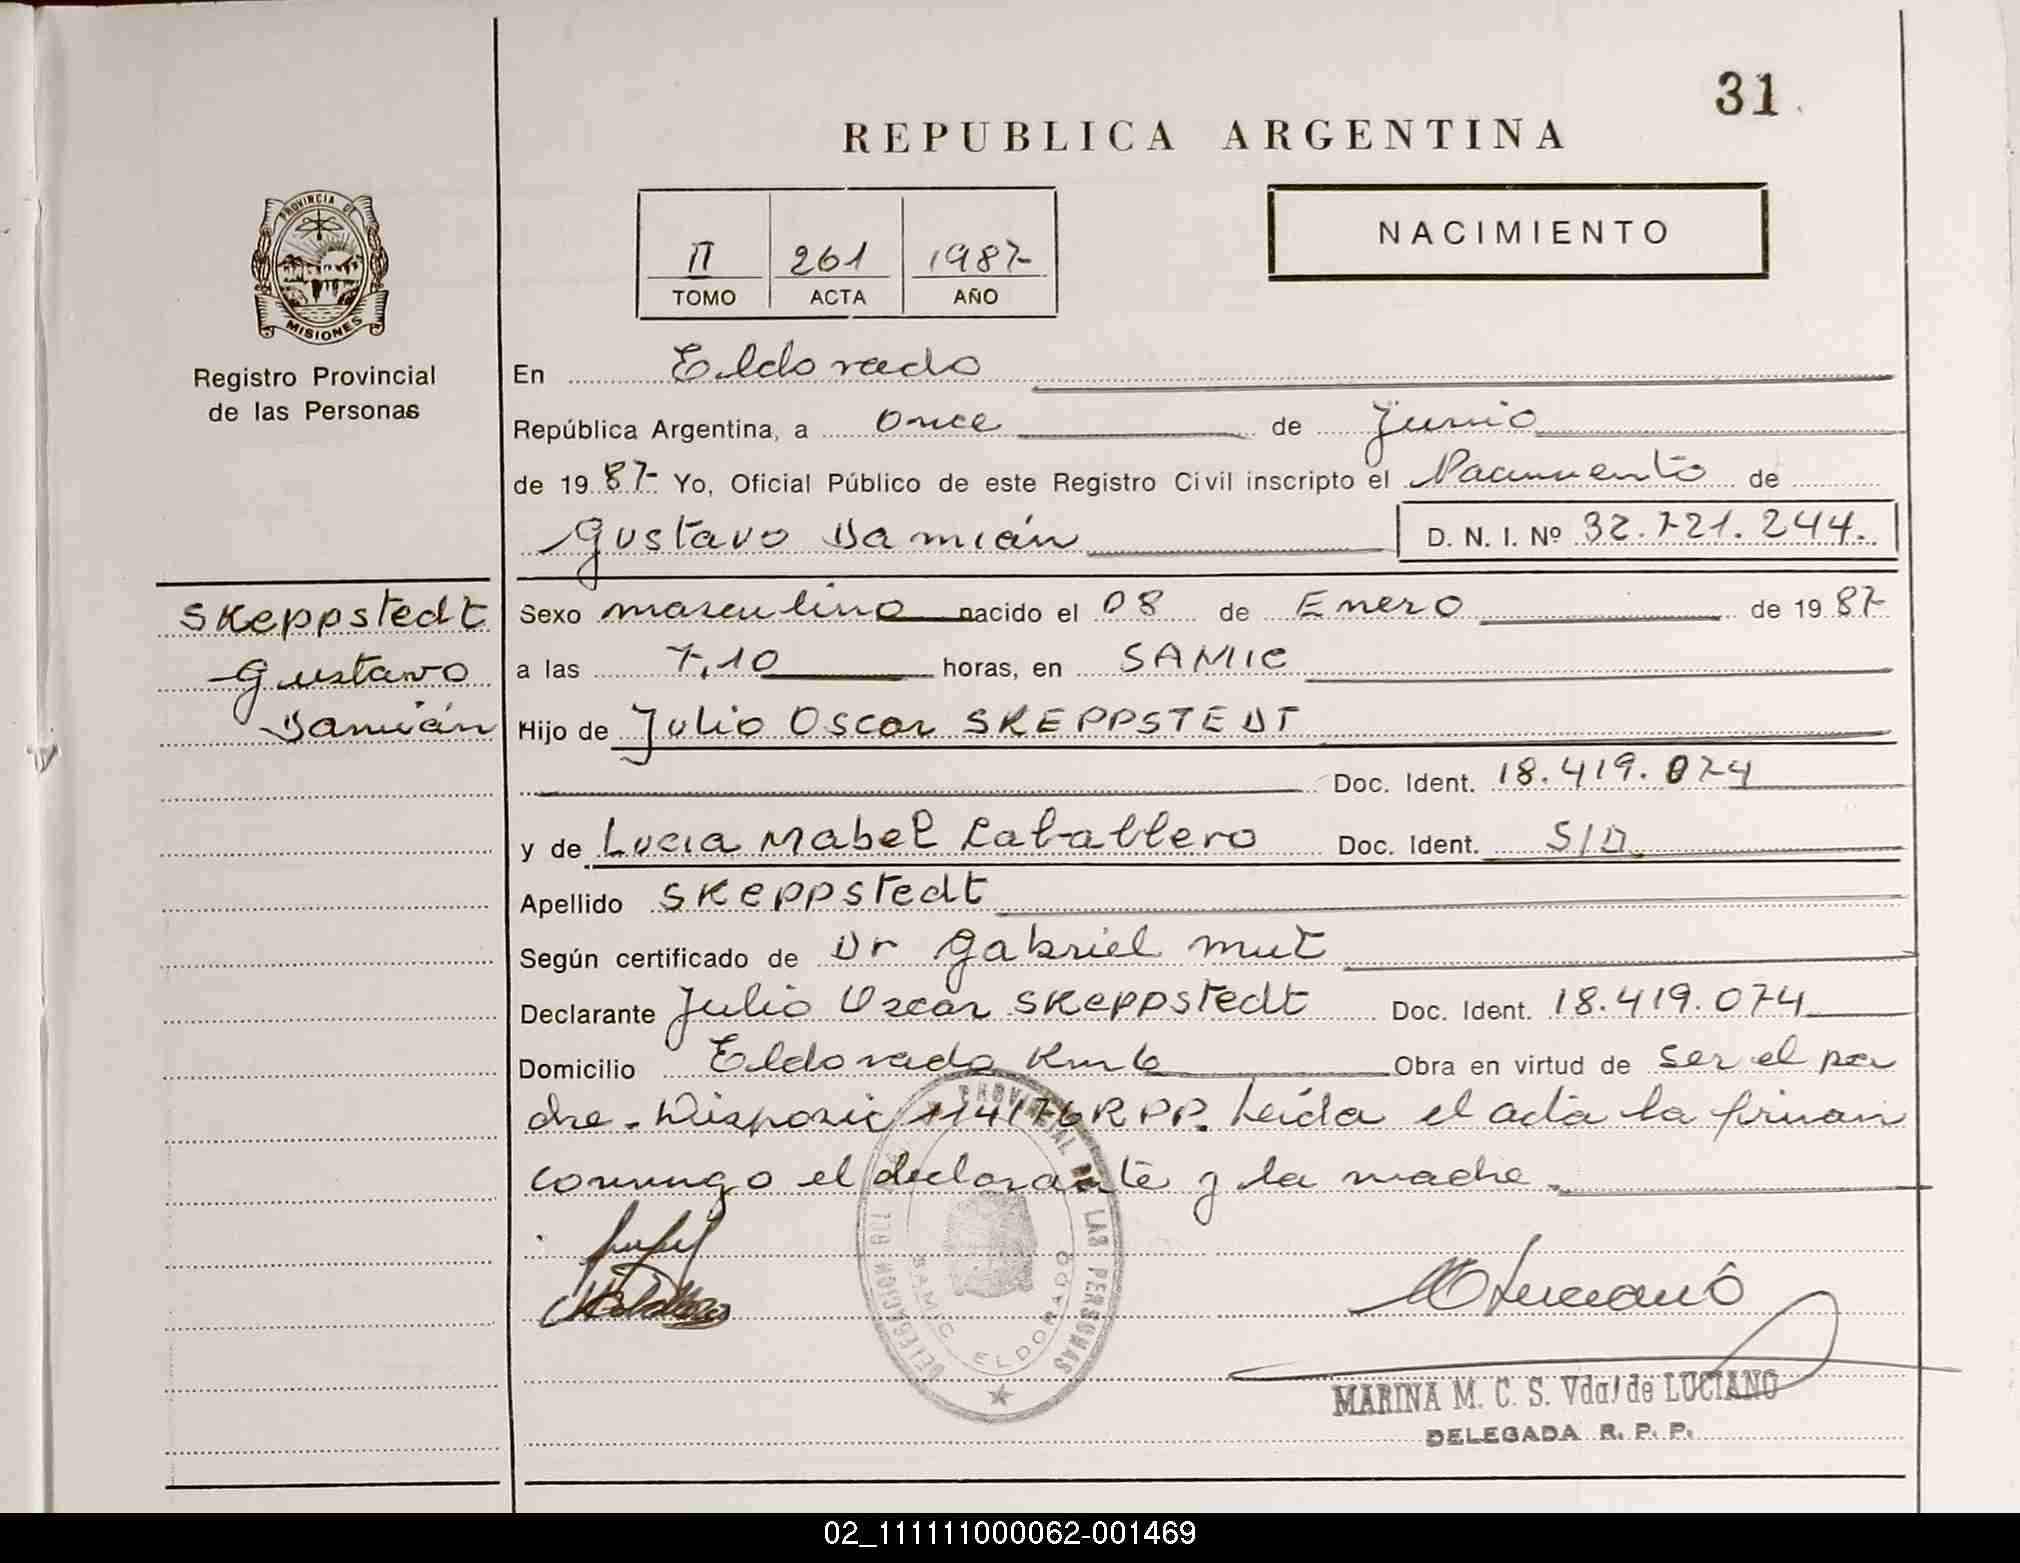 31
REPUBLICA ARGENTINA
NACIMIENTO
II 261 1987
TOMO ACTA AÑO
PROVINCIA DE
MISIONES
Registro Provincial
de las Personas
En Eldorado
República Argentina, a once de Junio
de 1987 Yo, Oficial Público de este Registro Civil inscripto el Nacimiento de
Gustavo Damián D. N. I. Nº 32.721.244.
Skeppstedt
Gustavo
Damián
Sexo masculino nacido el 08 de Enero de 1987
a las 7,10 horas, en SAMIC
Hijo de Julio Oscar SKEPPSTEDT
Doc. Ident. 18.419.074
y de Lucia Mabel Caballero Doc. Ident. S/D
Apellido Skeppstedt
Según certificado de Dr Gabriel Mut
Declarante Julio Oscar Skeppstedt Doc. Ident. 18.419.074
Domicilio Eldorado Km 6 Obra en virtud de ser el pa
dre. Disposic 114/76 RPP. Leída el acta la firman
conmigo el declarante y la madre.
DELEGACION PROVINCIAL DE LAS PERSONAS
SAMIC ELDORADO
MARINA M. C. S. Vda. de LUCIANO
DELEGADA R. P. P.
02_111111000062-001469